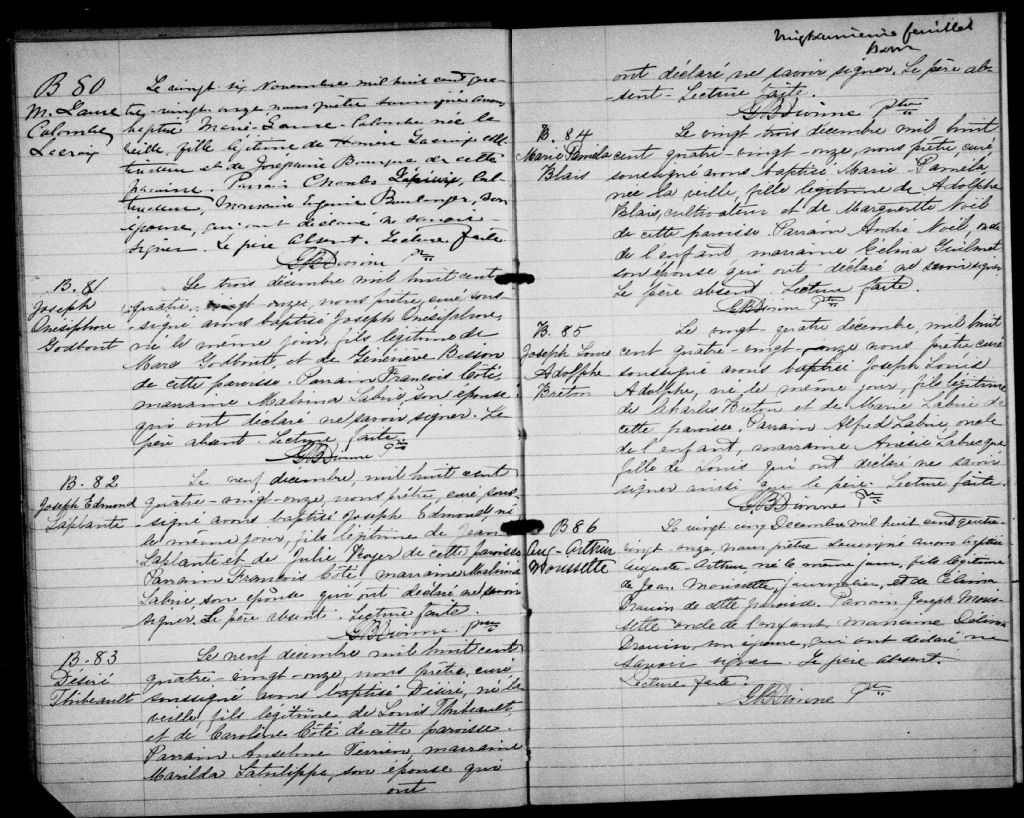 B 80
M. Laure
Colombe
Lacroix
Le vingt six Novembre mil huit cent qua-
tre-vingt onze nous prêtre soussigné avons
baptisé Marie-Laure-Colombe née la
veille, fille légitime de Honoré Lacroix culti-
vateur et de Josephine Bourque de cette
paroisse. Parrain Charles cul-
tivateur, Marraine Boulanger, son
épouse, qui ont déclaré ne savoir
signer. Le père absent. Lecture faite
G.B. Dionne Ptre
B. 81
Joseph
Onésiphore
Godbout
Le trois décembre mil huit cent
quatre-vingt onze, nous prêtre, curé sous-
signé avons baptisé Joseph Onésiphore,
né le même jour, fils légitime de
Marc Godbout, et de Geneviève Bisson
de cette paroisse. Parrain François Côté,
marraine Malvina Labrie son épouse
qui ont déclaré ne savoir signer. Le
père absent. Lecture faite.
G.B. Dionne Ptre
B. 82
Joseph Edmond
Laplante
Le neuf décembre, mil huit cent
quatre-vingt-onze, nous prêtre, curé sous-
signé avons baptisé Joseph Edmond, né
le même jour, fils légitime de Jean
Laplante et de Julie Royer de cette paroisse
Parrain François Côté marraine Malvina
Labrie son épouse qui ont déclaré ne savoir
signer. Le père absent. Lecture faite.
G.B. Dionne ptre
B. 83
Désiré
Thibeault
Le neuf décembre mil huit cent
quatre-vingt-onze, nous prêtre, curé
soussigné avons baptisé Désiré, né la
veille, fils légitime de Louis Thibeault,
et de Caroline Côté de cette paroisse.
Parrain Anselme Terrien, marraine
Marilda Latulippe, son épouse qui
ont
feuillet
ont déclaré ne savoir signer. Le père ab-
sent. Lecture faite.
G.B. Dionne Ptre
B. 84
Marie Paméla
Blais
Le vingt-trois décembre mil huit
cent quatre-vingt-onze, nous prêtre, curé
soussigné avons baptisé Marie-Paméla,
née la veille, fille légitime de Adolphe
Blais, cultivateur et de Marguerite Noël
de cette paroisse. Parrain André Noël, oncle
de l'enfant, marraine Célina Guilmet
son épouse qui ont déclaré ne savoir signer
Le père absent. Lecture faite.
G.B. Dionne Ptre
B. 85
Joseph Louis
Adolphe
Breton
Le vingt quatre décembre, mil huit
cent quatre-vingt-onze nous prêtre curé
soussigné avons baptisé Joseph Louis
Adolphe, né le même jour, fils légitime
de Charles Breton et de Marie Labrie de
cette paroisse. Parrain Alfred Labrie, oncle
de l'enfant, marraine Labrecque
fille de Louis qui ont déclaré ne savoir
signer ainsi que le père. Lecture faite.
G.B. Dionne Ptre
B 86
Aug-Arthur
Morissette
Le vingt cinq Decembre mil huit cent quatre-
vingt-onze, nous prêtre soussigné avons baptisé
Auguste Arthur, né le même jour, fils légitime
de Jean Morissette, journalier, et de
Drouin de cette paroisse. Parrain Joseph Moris-
sette oncle de l'enfant, marraine
Drouin, son épouse, qui ont déclaré ne
savoir signer. Le père absent.
Lecture faite.
G.B. Dionne Ptre